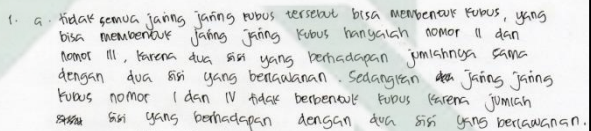 1. a. tidak semua jaring jaring kubus tersebut bisa membentuk kubus, yang
bisa membentuk jaring jaring kubus hanyalah nomor II dan
nomor III, karena dua sisi yang berhadapan jumlahnya sama
dengan dua sisi yang berlawanan. Sedangkan jaring jaring
kubus nomor I dan IV tidak berbentuk kubus karena jumlah
sisi yang berhadapan dengan dua sisi yang berlawanan.